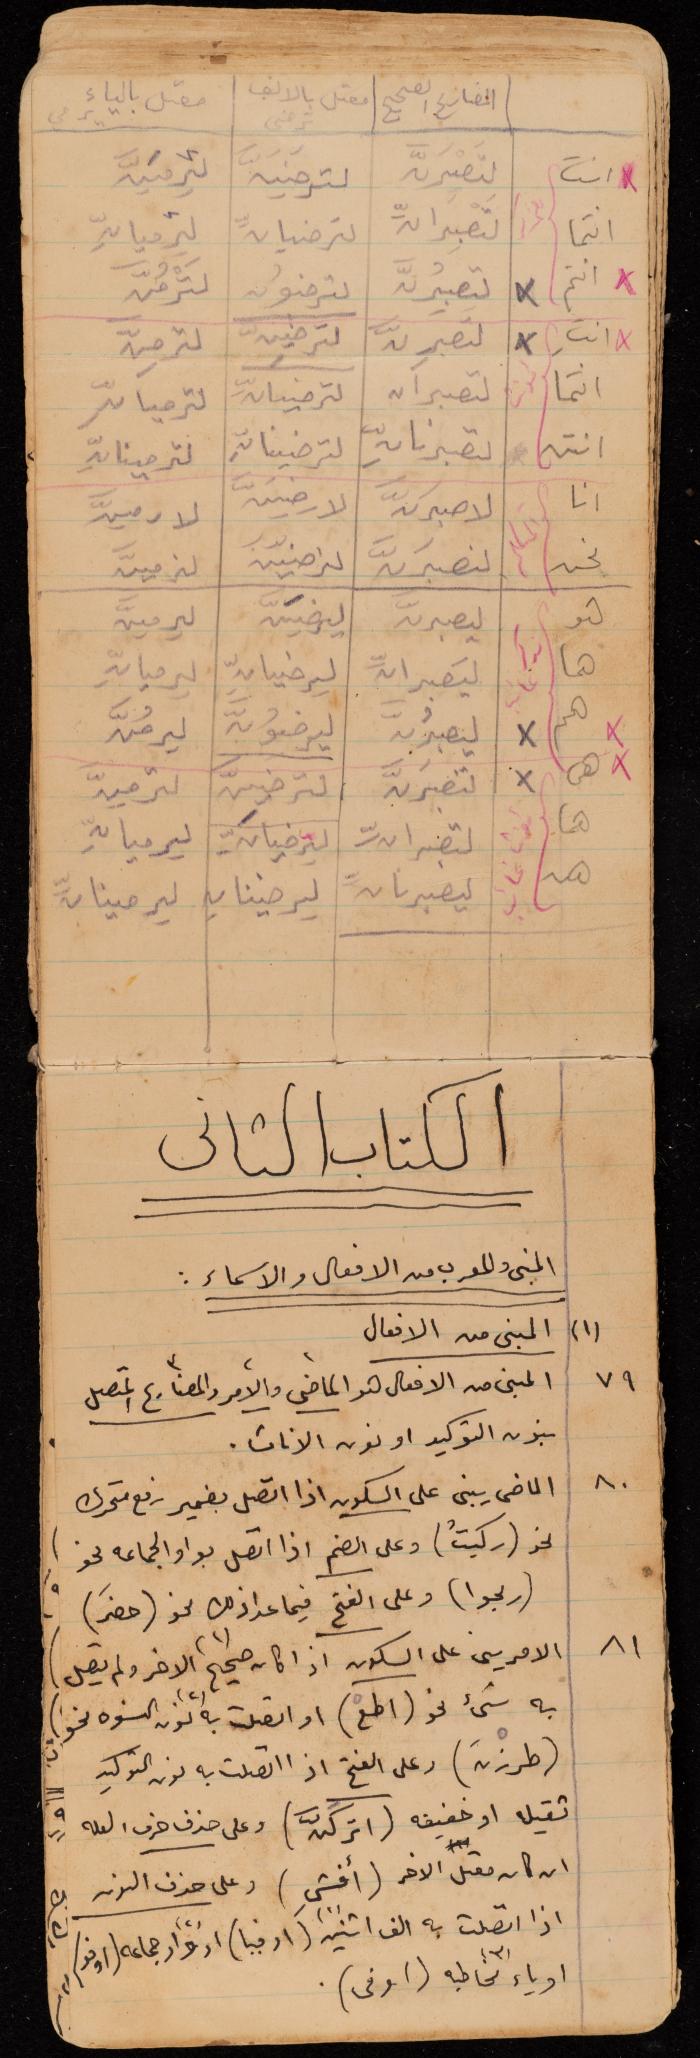 المضارع الصحيح معتل بالالف ترضى معتل بالياء يرمي
انتَ لتَصْبِرَنَّ لترضَيَنَّ لترمِيَنَّ
انتما لتَصْبِرانِّ لترضيانِّ لترميانِّ
انتم لتصبرُنَّ لترضوُن لترْمُنَّ
انتِ لتَصبرِنَّ لترضيِنَّ لترمِنَّ
انتما لتصبران لترضيانِّ لترميانِّ
انتن لتصبرنانِّ لترضينانِّ لترمينانِّ
انا لاصبرَنَّ لارضيَنَّ لارميَنَّ
نحن لنصبرَنَّ لنرضينّ لنرمينَّ
هو ليصبرنَّ ليرضيَنَّ ليرمينَّ
هما ليَصبرانِّ ليرضيانِّ ليرميانِّ
هم ليصبرُنَّ ليرضوُنَّ ليرمُنَّ
هي لتصبرَنَّ لترضينَّ لترمينَّ
هما لتصبرانِّ ليرضيانِّ ليرميانِّ
هن ليصبرنانِّ ليرضينانِ ليرمينانِّ
الكتاب الثانى
المبنى والمعرب من الافعال والاسماء :
(١) المبنى من الافعال
٧٩ المبنى من الافعال هو الماضى والامر والمضارع المتصل
بنون التوكيد او نون الاناث .
٨٠ الماضى يبنى على السكون اذا اتصل بضمير رفع متحرك
نحو (ركبتُ) وعلى الضم اذا اتصل بواو الجماعه نحو
(ربحوا) وعلى الفتح فيما عدا ذلك نحو (حضرَ)
٨١ الامر يبنى على السكون اذا كان صحيح (١) الاخر ولم يتصل
به شئ نحو (اطعْ) او اتصلت به (٢) نون النسوه نحو
(طرزْنَ) وعلى الفتح اذا اتصلت به نون التوكيد
ثقيله او خفيفه (اتركَنَّ) وعلى حذف حرف العله
ان كان معتل الاخر (أفشِ) وعلى حذف النون
اذا اتصلت به الف اثنين (١) (اوفيا) او واو (٢) جماعه (اوفو)
او ياء (٣) مخاطبه (اوفى) .